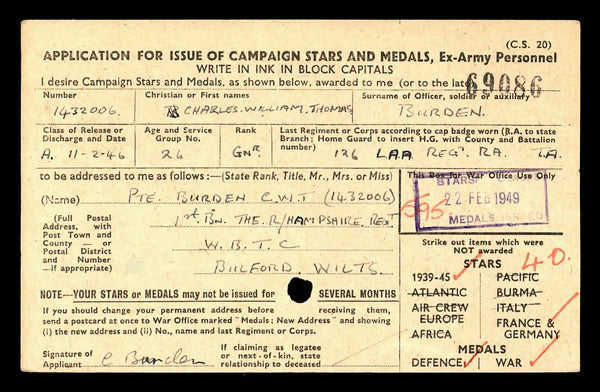 (C.S. 20)
APPLICATION FOR ISSUE OF CAMPAIGN STARS AND MEDALS, Ex-Army Personnel
WRITE IN INK IN BLOCK CAPITALS
I desire Campaign Stars and Medals, as shown below, awarded to me (or to the late
69086
Number
1432006.
Christian or First names
CHARLES. WILLIAM. THOMAS
Surname of Officer, soldier or auxiliary
BURDEN.
Class of Release or Discharge and Date
A. 11-2-46
Age and Service Group No.
26
Rank
GNR.
Last Regiment or Corps according to cap badge worn (R.A. to state
Branch; Home Guard to insert H.G. with County and Battalion
number)
126 L.A.A. REGT. RA. T.A.
to be addressed to me as follows:—(State Rank, Title, Mr., Mrs. or Miss)
(Name) PTE. BURDEN C.W.T (1432006)
(Full Postal
Address, with
Post Town and
County — or
Postal District
and Number
—if appropriate)
1st. BN. THE. R/HAMPSHIRE. REGT
W.B.T.C
BULFORD. WILTS
This Box for War Office Use Only
STARS
22 FEB 1949
MEDALS ISSUED
595
Strike out items which were
NOT awarded
40.
STARS
1939-45 PACIFIC
ATLANTIC BURMA
AIR CREW EUROPE ITALY
AFRICA FRANCE & GERMANY
MEDALS
DEFENCE WAR
NOTE—YOUR STARS or MEDALS may not be issued for SEVERAL MONTHS
If you should change your permanent address before receiving them,
send a postcard at once to War Office marked "Medals: New Address" and showing
(i) the new address and (ii) No., name and last Regiment or Corps.
Signature of
Applicant
C Burden
If claiming as legatee
or next-of-kin, state
relationship to deceased